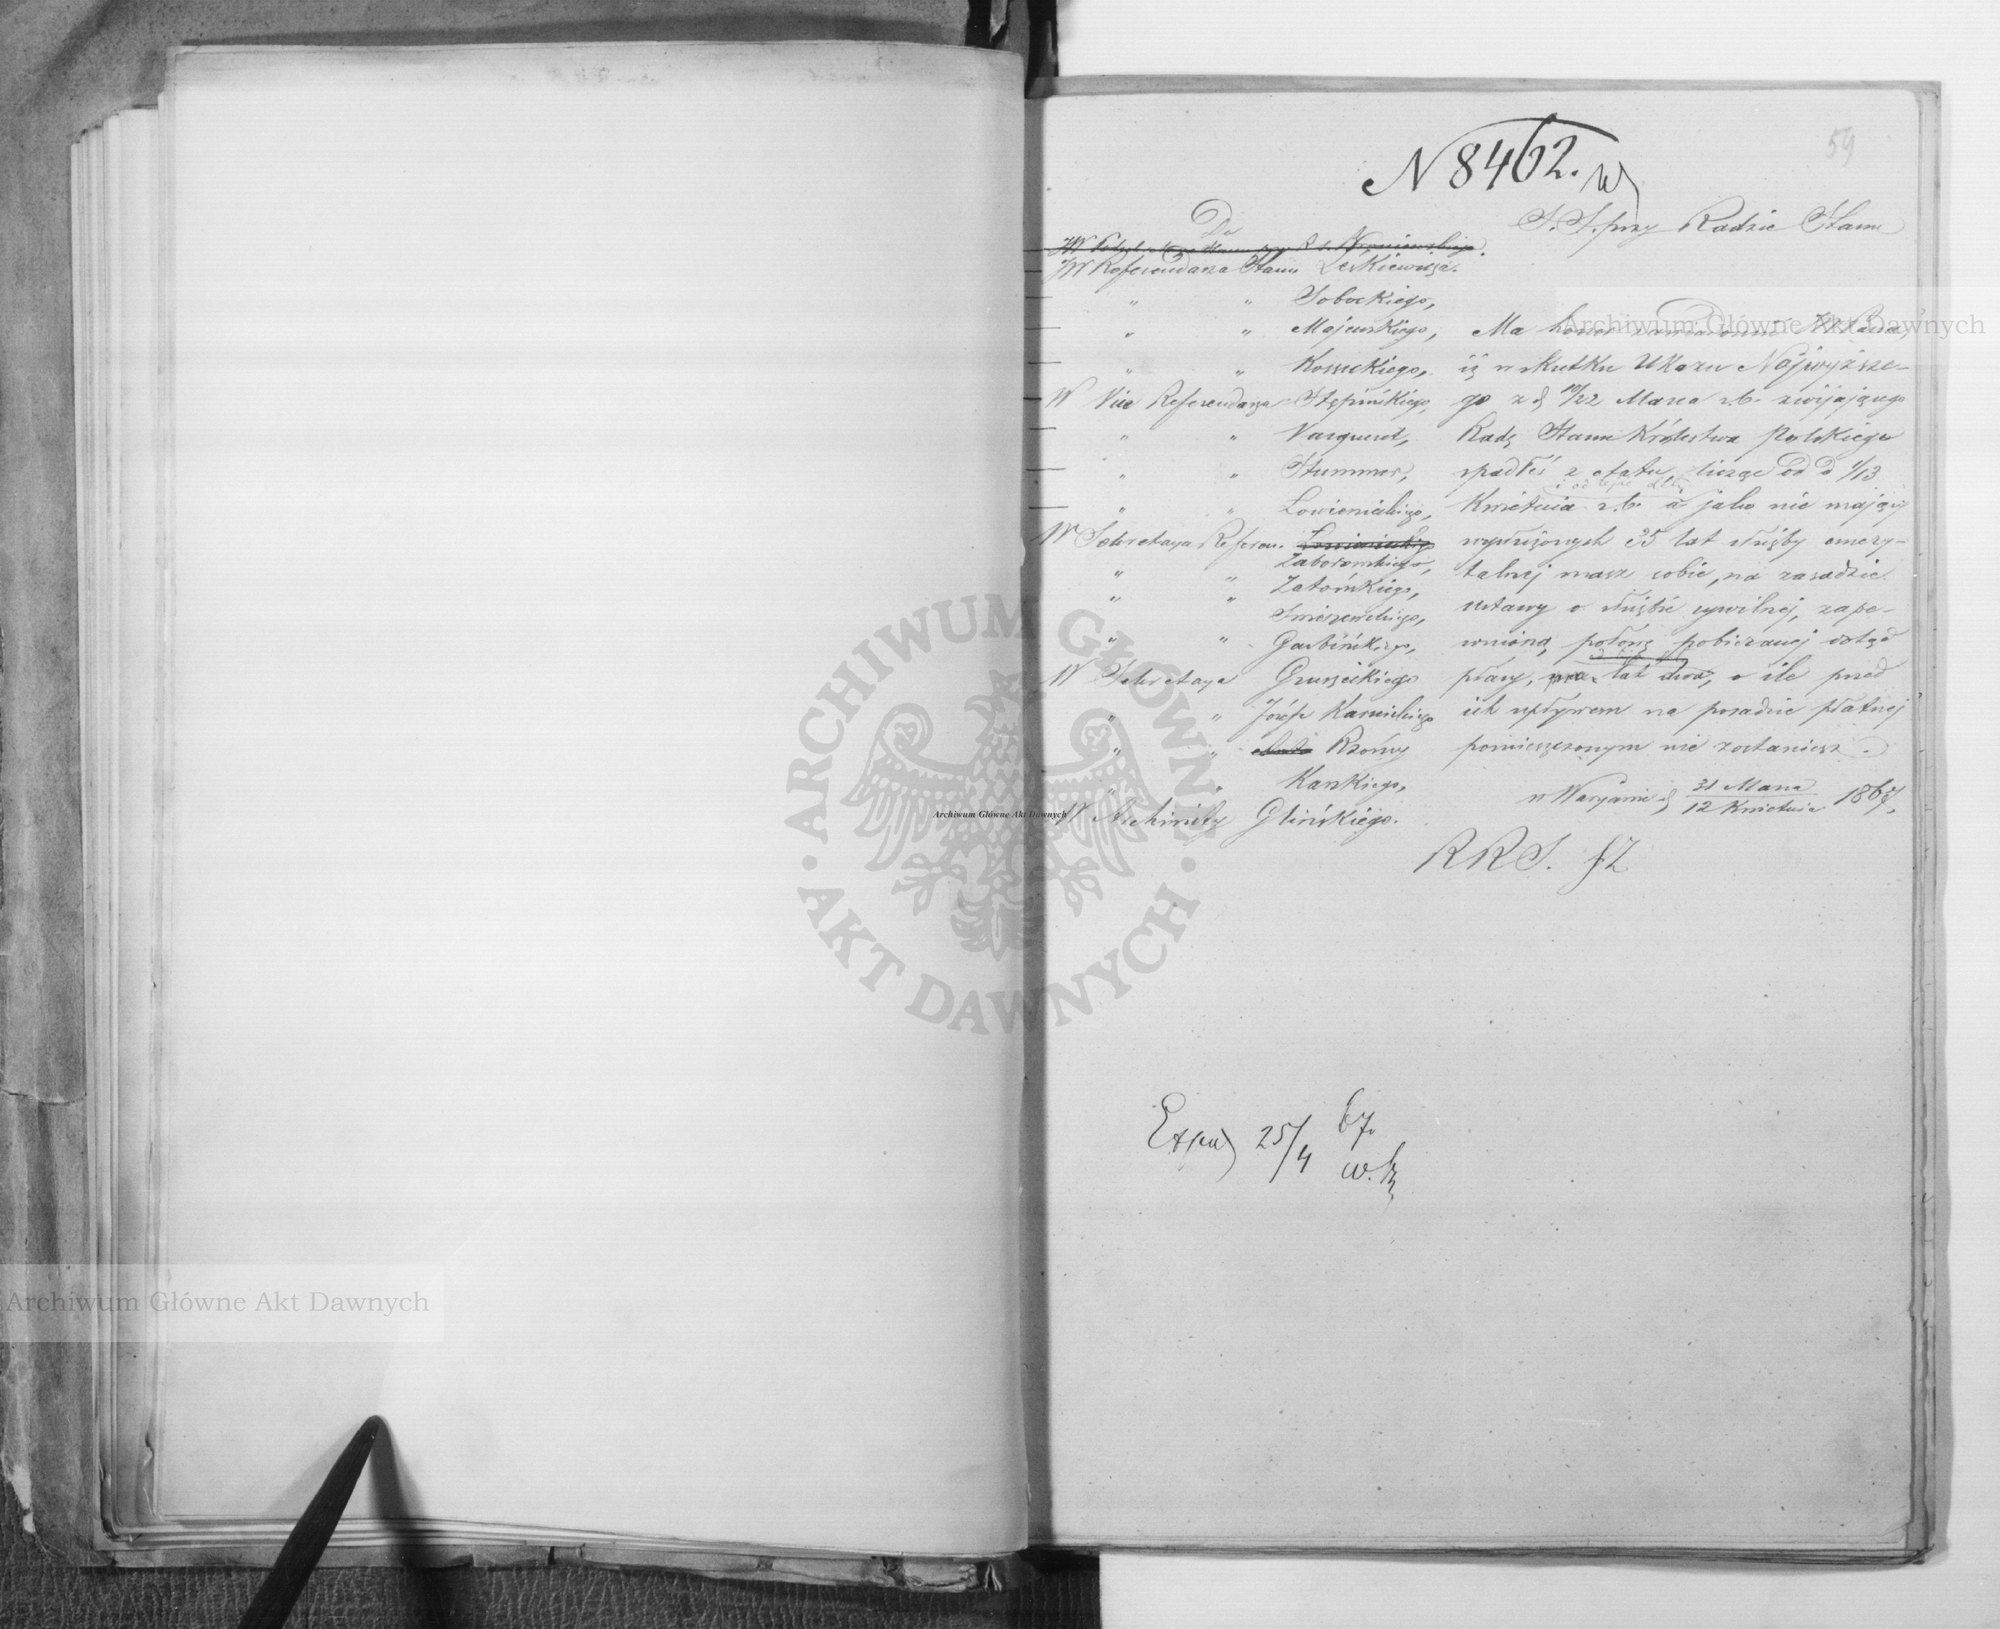 59
N 8462.
S. S. przy Radzie Stanu
Do
JW Referendarza Stanu Leskiewicza.
" " Sobockiego,
" " Majewskiego,
" " Kosseckiego,
W Vice Referendarza Stępińskiego,
" " Vasguerot,
" " Stummer,
" " Łowienickiego,
W Sekretarza Referen.
Zaborowskiego,
" " Zatorskiego,
" " Smiszewskiego,
" " Garbińskiego,
W Sekretarza Gruszeckiego
" " Józefa Kamińskiego
" " Rzońcy
" " Karskiego,
W Archiwisty Glińskiego.
Ma honor zawiadomić
iż w skutku Ukazu Najwyższe-
go z d 10/22 Marca r.b. zwijającego
Radę Stanu Królestwa Polskiego
spadłeś z etatu, licząc od d 1/13
Kwietnia r.b. a jako nie mający
wysłużonych 35 lat służby emery-
talnej masz sobie, na zasadzie
ustawy o służbie cywilnej, zape-
wnioną połowę pobieranej dotąd
płacy, lat dwa, o ile przed
ich upływem na posadzie płatnej
pomieszczonym nie zostaniesz.
w Warszawie d 31 Marca / 12 Kwietnia 1867,
R R S.
25/4 67.
Archiwum Główne Akt Dawnych
Archiwum Główne Akt Dawnych
Archiwum Główne Akt Dawnych
ARCHIWUM GŁÓWNE
AKT DAWNYCH